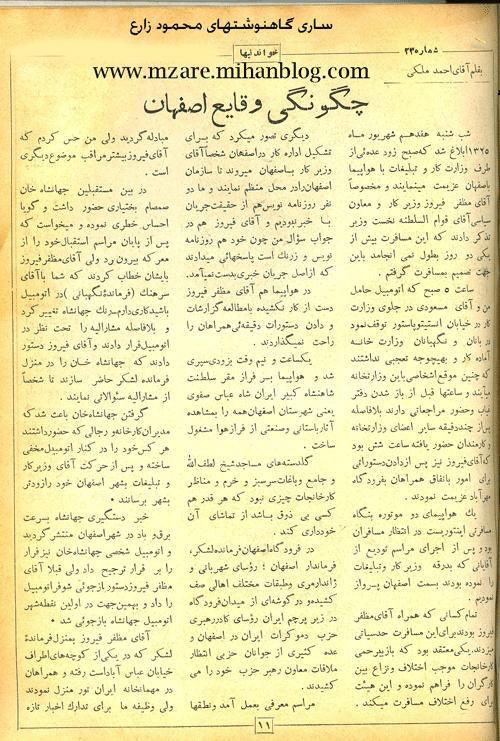 ساری گاهنوشتهای محمود زارع
شماره ۲۳۰
خواندنیها
www.mzare.mihanblog.com
بقلم آقای احمد ملکی
چگونگی وقایع اصفهان
شب شنبه هفدهم شهریور ماه
۱۳۲۵ ابلاغ شد که صبح زود عده‌ئی از
طرف وزارت کار و تبلیغات با هواپیما
باصفهان عزیمت مینمایند و مخصوصاً
آقای مظفر فیروز وزیر کار و معاون
سیاسی آقای قوام السلطنه نخست وزیر
تذکر دادند که این مسافرت بیش از
یکی دو روز بطول نمی انجامد باین
جهت تصمیم بمسافرت گرفتم .
ساعت ۵ صبح که اتومبیل حامل
من و آقای مسعودی در جلوی وزارت
کار در خیابان انستیتوپاستور توقف نمود
در بانان و نگهبانان وزارت خانه
آماده کار و بهیچوجه تعجبی نداشتند
که چنین موقع اشخاصی باین وزارتخانه
میآیند و ساعتها قبل از باز شدن دفتر
غیاب وحضور مراجعاتی دارند بلافاصله
پس از چند دقیقه سایر اعضای وزارتخانه
و کارمندان حضور یافته ساعت شش بود
که آقای فیروز نیز پس از دادن دستوراتی
برای امور باتفاق همراهان بفرودگاه
مهرآباد عزیمت نمودند .
یك هواپیمای دو موتوره بنگاه
مسافرتی اینتوریست در انتظار مسافران
بود و پس از اجرای مراسم تودیع از
آقایانی که ببدرقه وزیر کار وتبلیغات
آمده بودند بسمت اصفهان پرواز
نمودیم .
تمام کسانی که همراه آقای مظفر
فیروز بودند برای این مسافرت حدسیاتی
میزدند، یکی معتقد بود که بازپیرحمی
کارخانجات موجب اختلاف ونزاع بین
کارگران را فراهم نموده و این هیئت
برای رفع اختلاف مسافرت میکند .
دیگری تصور میکرد که برای
تشکیل اداره کار دراصفهان شخصاً آقای
وزیر کار باصفهان میروند تا سازمان
اصفهان را در محل منظم نمایند و ما دو
نفر روزنامه نویس هم از حقیقت جریان
با خبر نبودیم و آقای فیروز هم در
جواب سؤال من چون خود هم روزنامه
نویس و زرنك است پاسخهائی میدادند
که از اصل جریان خبری بدست نمیآمد.
در هواپیما هم آقای مظفر فیروز
دست از کار نکشیده بامطالعه گزارشات
و دادن دستورات دقیقه‌ئی همراهان را
راحت نمیگذاردند .
یکساعت و نیم وقت بزودی سپری
شد و هواپیما بر فراز مقر سلطنت
شاهنشاه کبیر ایران شاه عباس صفوی
یعنی شهرستان اصفهان همه را بمشاهده
آثار باستانی وصنعتی از فراز هوا مشغول
ساخت .
گلدسته‌های مساجد شیخ لطف الله
و جامع و باغات سرسبز و خرم و مناظر
کارخانجات چیزی نبود که هر قدر هم
کسی بی ذوق باشد از تماشای آن
خودداری کند .
در فرودگاه اصفهان فرمانده لشکر،
فرماندار اصفهان ؛ رؤسای شهربانی و
ژاندارمری وطبقات مختلف اهالی صف
کشیده و در گوشه‌ای از میدان فرودگاه
در زیر پرچم ایران رؤسای کادر رهبری
حزب دموکرات ایران در اصفهان و
عده کثیری از جوانان حزبی انتظار
ملاقات معاون رهبر حزب خود را می
کشیدند .
مراسم معرفی بعمل آمد ونطقها
مبادله گردید ولی من حس کردم که
آقای فیروز بیشتر مراقب موضوع دیگری
است .
در بین مستقبلین جهانشاه خان
صمصام بختیاری حضور داشت و گویا
احساس خطری نموده و میخواست که
پس از پایان مراسم استقبال خود را از
معرکه بیرون برد ولی آقای مظفر فیروز
بایشان خطاب کردند که شما با آقای
سرهنك ( فرمانده نگهبانی ) در اتومبیل
باشید کاری دارم رنك جهانشاه تغییر کرد
و بلافاصله مشارالیه را تحت نظر در
اتومبیل قرار دادند و آقای فیروز دستور
دادند که جهانشاه خان را در منزل
فرمانده لشکر حاضر سازند تا شخصاً
از مشارالیه سئوالاتی نمایند .
گرفتن جهانشاه خان باعث شد که
مدیران کارخانه و رجالی که حضورداشتند
هر کس خود را در کنار اتومبیل مخفی
ساخته و پس از حرکت آقای وزیر کار
و تبلیغات بشهر اصفهان خود را زودتر
بشهر برسانند .
خبر دستگیری جهانشاه بسرعت
برق و باد در شهر اصفهان منتشر گردید
و اتومبیل شخصی جهانشاه خان نیز فرار
را بر قرار ترجیح داد ولی قبلا آقای
مظفر فیروز دستور بازجوئی شوفر اتومبیل
را داد و بهمین جهت در اولین نقطه شهر
اتومبیل جهانشاه بازجوئی شد .
آقای مظفر فیروز بمنزل فرمانده
لشکر که در یکی از کوچه‌های اطراف
خیابان عباس آباد است رفته و همراهان
در مهمانخانه ایران تور منزل نمودند
ولی وظیفه ما برای تدارك اخبار تازه
۱۱